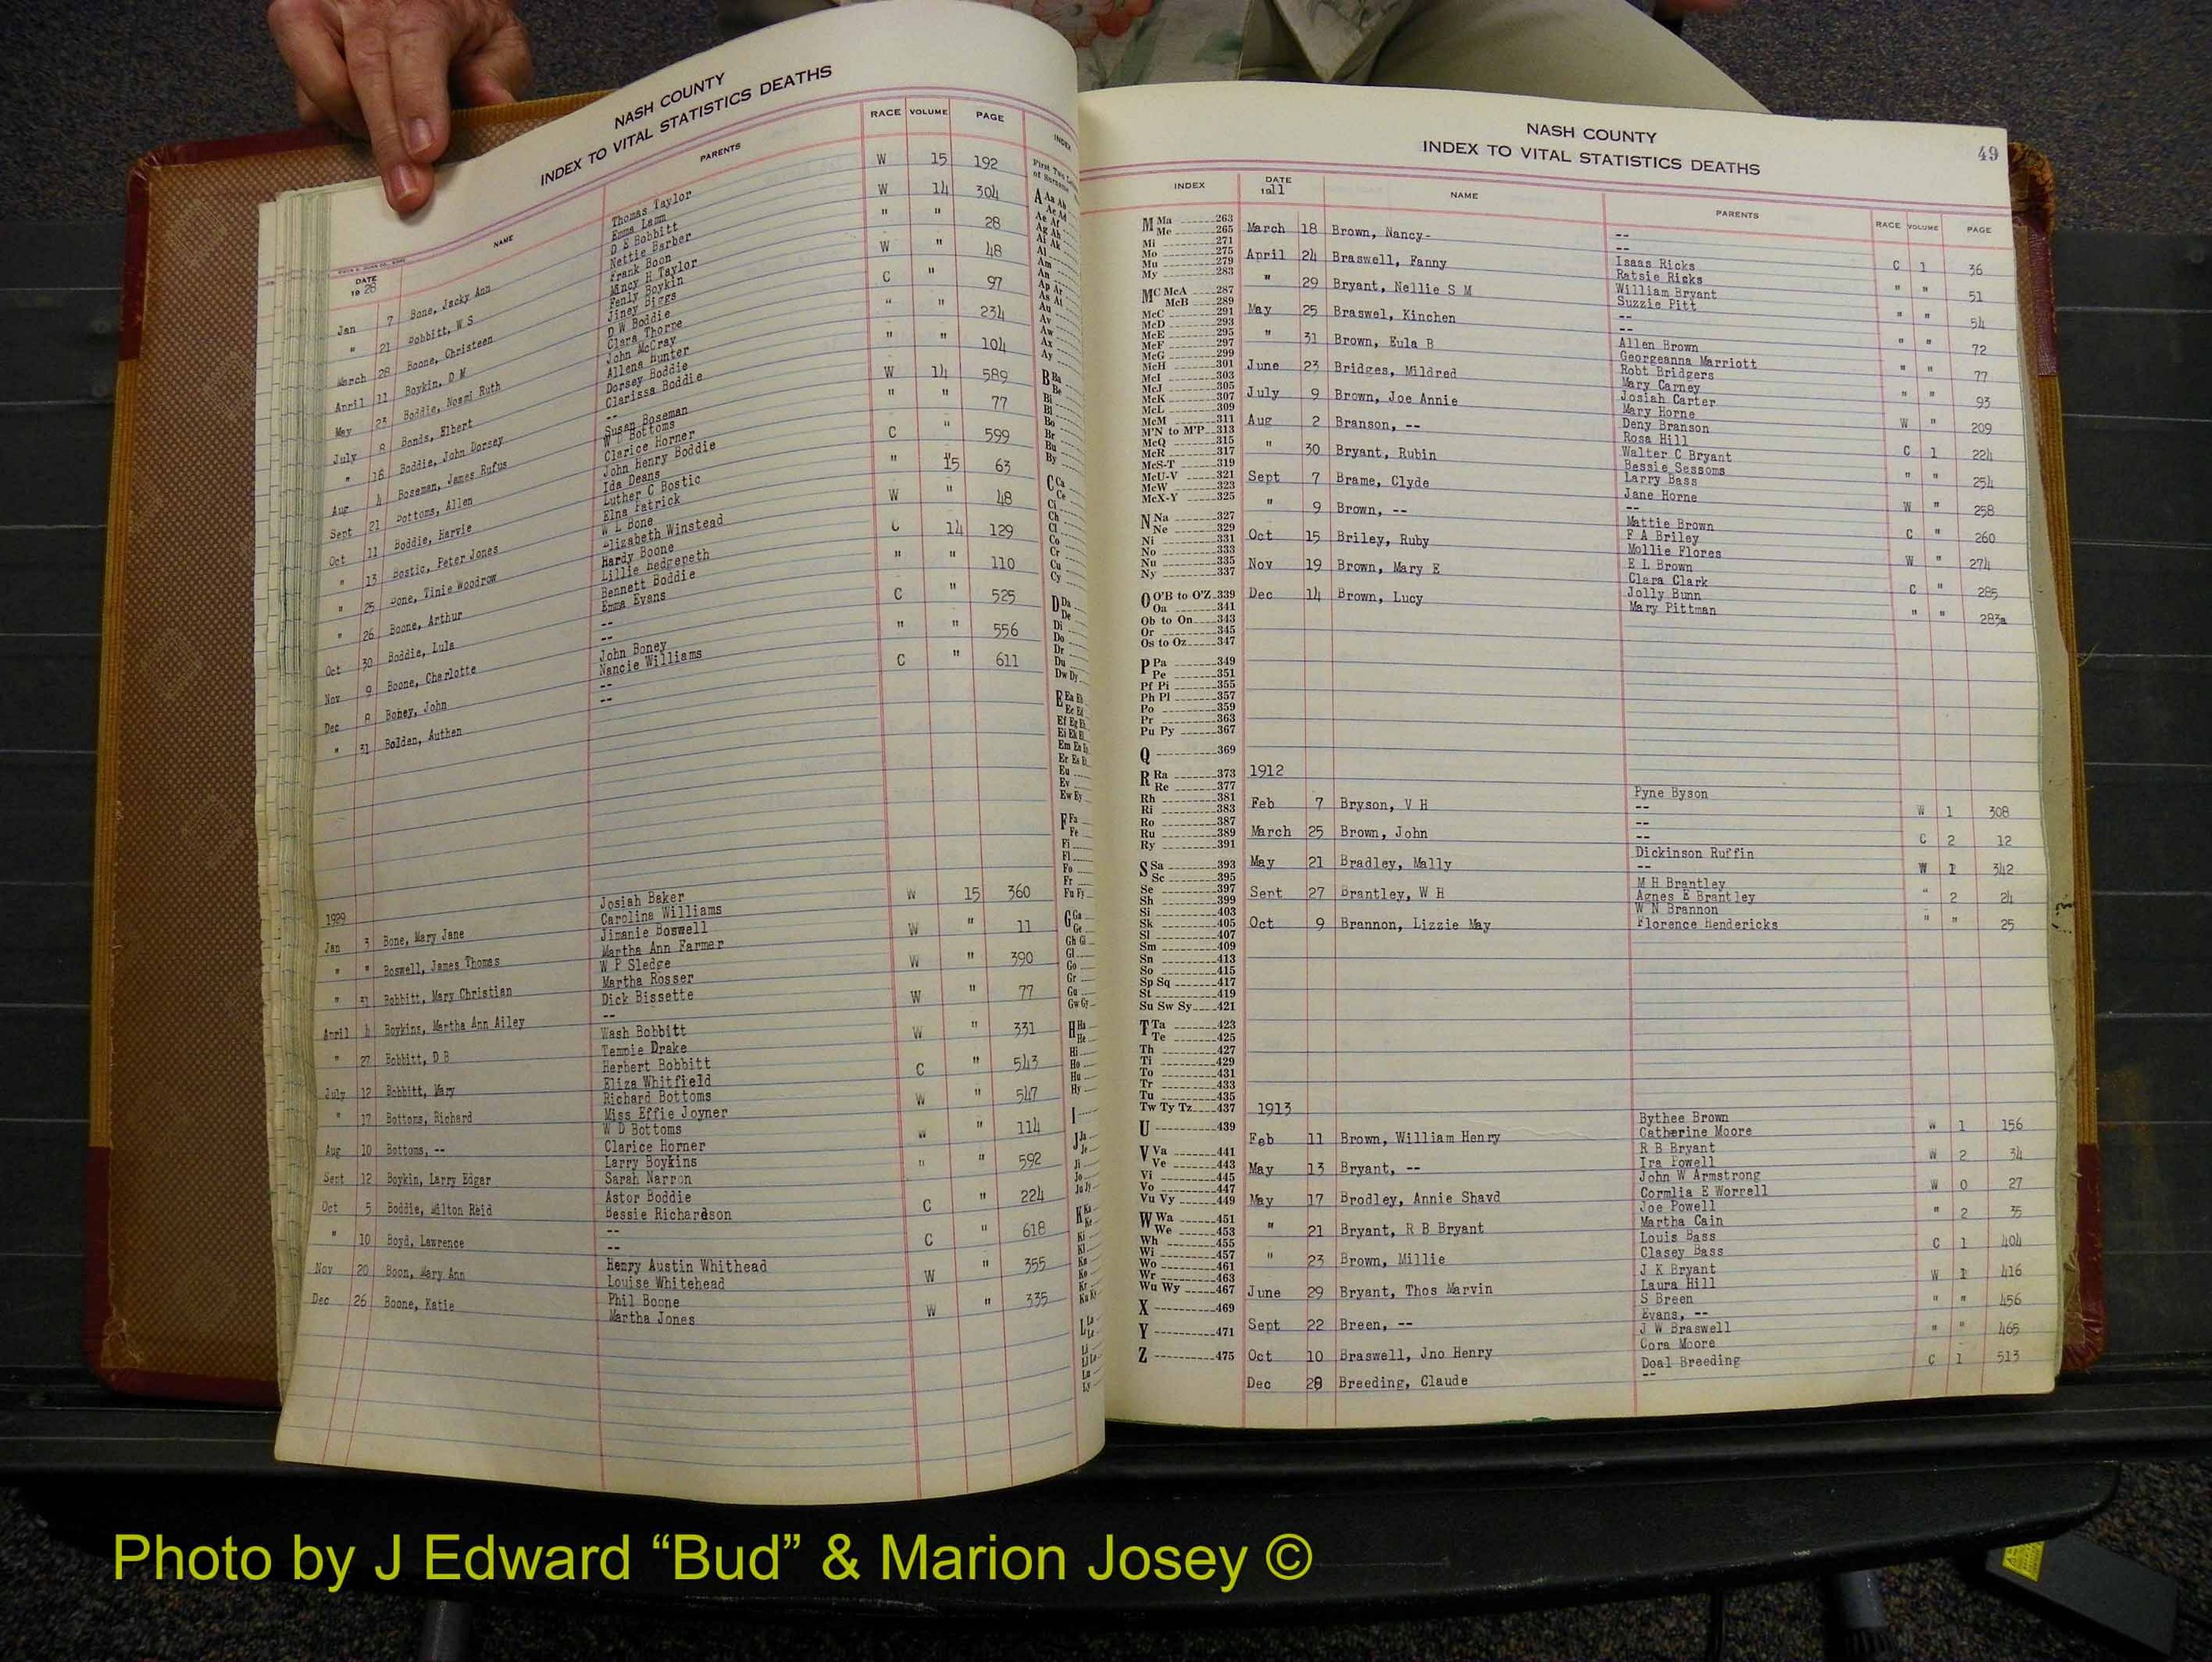 NASH COUNTY
INDEX TO VITAL STATISTICS DEATHS
DATE NAME PARENTS RACE VOLUME PAGE
1928
Jan 7 Bone, Jacky Ann Thomas Taylor W 15 192
Emma Lamm
" 21 Bobbitt, W S D E Bobbitt W 14 304
Nettie Barber
March 28 Boone, Christeen Frank Boon " " 28
Mincy H Taylor
April 11 Boykin, D M Fenly Boykin W " 48
Jiney Biggs
May 23 Boddie, Noami Ruth D W Boddie C " 97
Clara Thorne
July 8 Bonds, Elbert John McCray " " 234
Allena Hunter
" 16 Boddie, John Dorsey Dorsey Boddie " " 104
Clarissa Boddie
Aug 4 Boseman, James Rufus -- W 14 589
Susan Boseman
Sept 21 Bottoms, Allen W D Bottoms " " 77
Clarice Horner
Oct 11 Boddie, Harvie John Henry Boddie C " 599
Ida Deans
" 13 Bostic, Peter Jones Luther C Bostic " 15 63
Elna Patrick
" 25 Bone, Tinie Woodrow W L Bone W " 48
Elizabeth Winstead
" 26 Boone, Arthur Hardy Boone C 14 129
Lillie Hedgepeth
Oct 30 Boddie, Lula Bennett Boddie " " 110
Emma Evans
Nov 9 Boone, Charlotte -- C " 525
--
Dec 8 Boney, John John Boney " " 556
Nancie Williams
" 31 Bolden, Authen -- C " 611
--
1929
Jan 3 Bone, Mary Jane Josiah Baker W 15 360
Carolina Williams
" " Boswell, James Thomas Jimanie Boswell W " 11
Martha Ann Farmer
" 31 Bobbitt, Mary Christian W P Sledge W " 390
Martha Rosser
April 4 Boykins, Martha Ann Ailey Dick Bissette W " 77
--
" 27 Bobbitt, D B Wash Bobbitt W " 331
Tempie Drake
July 12 Bobbitt, Mary Herbert Bobbitt C " 543
Eliza Whitfield
" 17 Bottoms, Richard Richard Bottoms W " 547
Miss Effie Joyner
Aug 10 Bottoms, -- W D Bottoms W " 114
Clarice Horner
Sept 12 Boykin, Larry Edgar Larry Boykins " " 592
Sarah Narron
Oct 5 Boddie, Milton Reid Astor Boddie C " 224
Bessie Richardson
" 10 Boyd, Lawrence -- C " 618
--
Nov 20 Boon, Mary Ann Henry Austin Whithead W " 355
Louise Whitehead
Dec 26 Boone, Katie Phil Boone W " 335
Martha Jones
NASH COUNTY
INDEX TO VITAL STATISTICS DEATHS
49
INDEX DATE NAME PARENTS RACE VOLUME PAGE
1911
M Ma 263
Me 265
Mi 271
Mo 275
Mu 279
My 283
MC McA 287
McB 289
McC 291
McD 293
McE 295
McF 297
McG 299
McH 301
McI 303
McJ 305
McK 307
McL 309
McM 311
M'N to M'P 313
McQ 315
McR 317
McS-T 319
McU-V 321
McW 323
McX-Y 325
N Na 327
Ne 329
Ni 331
No 333
Nu 335
Ny 337
O O'B to O'Z 339
Oa 341
Ob to On 343
Or 345
Os to Oz 347
P Pa 349
Pe 351
Pf Pi 355
Ph Pl 357
Po 359
Pr 363
Pu Py 367
Q 369
R Ra 373
Re 377
Rh 381
Ri 383
Ro 387
Ru 389
Ry 391
S Sa 393
Sc 395
Se 397
Sh 399
Si 403
Sk 405
Sl 407
Sm 409
Sn 413
So 415
Sp Sq 417
St 419
Su Sw Sy 421
T Ta 423
Te 425
Th 427
Ti 429
To 431
Tr 433
Tu 435
Tw Ty Tz 437
U 439
V Va 441
Ve 443
Vi 445
Vo 447
Vu Vy 449
W Wa 451
We 453
Wh 455
Wi 457
Wo 461
Wr 463
Wu Wy 467
X 469
Y 471
Z 475
March 18 Brown, Nancy- -- C 1 36
--
April 24 Braswell, Fanny Isaas Ricks " " 51
Ratsie Ricks
" 29 Bryant, Nellie S M William Bryant " " 54
Suzzie Pitt
May 25 Braswel, Kinchen -- " " 72
--
" 31 Brown, Eula B Allen Brown " " 77
Georgeanna Marriott
June 23 Bridges, Mildred Robt Bridgers " " 93
Mary Carney
July 9 Brown, Joe Annie Josiah Carter W " 209
Mary Horne
Aug 2 Branson, -- Deny Branson C 1 224
Rosa Hill
" 30 Bryant, Rubin Walter C Bryant " " 254
Bessie Sessoms
Sept 7 Brame, Clyde Larry Bass W " 258
Jane Horne
" 9 Brown, -- -- C " 260
Mattie Brown
Oct 15 Briley, Ruby F A Briley W " 274
Mollie Flores
Nov 19 Brown, Mary E E L Brown C " 285
Clara Clark
Dec 14 Brown, Lucy Jolly Bunn " " 283a
Mary Pittman
1912
Feb 7 Bryson, V H Pyne Byson W 1 308
--
March 25 Brown, John -- C 2 12
--
May 21 Bradley, Mally Dickinson Ruffin W 1 342
--
Sept 27 Brantley, W H M H Brantley " 2 24
Agnes E Brantley
Oct 9 Brannon, Lizzie May W N Brannon " " 25
Florence Hendericks
1913
Feb 11 Brown, William Henry Bythee Brown W 1 156
Catherine Moore
May 13 Bryant, -- R B Bryant W 2 34
Ira Powell
May 17 Brodley, Annie Shavd John W Armstrong W 0 27
Cormlia E Worrell
" 21 Bryant, R B Bryant Joe Powell " 2 35
Martha Cain
" 23 Brown, Millie Louis Bass C 1 404
Clasey Bass
June 29 Bryant, Thos Marvin J K Bryant W 1 416
Laura Hill
Sept 22 Breen, -- S Breen " " 456
Evans, --
Oct 10 Braswell, Jno Henry J W Braswell " " 465
Cora Moore
Dec 28 Breeding, Claude Doal Breeding C 1 513
--
Photo by J Edward “Bud” & Marion Josey ©